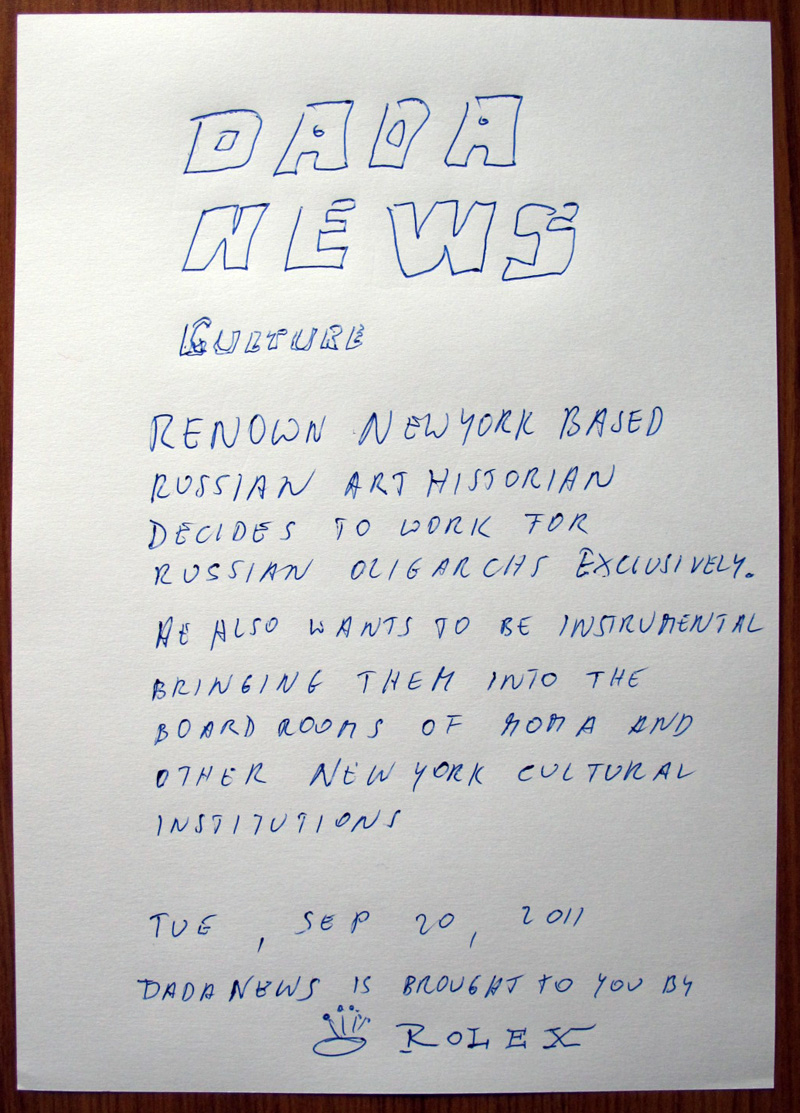 DADA
NEWS
CULTURE
RENOWN NEWYORK BASED
RUSSIAN ART HISTORIAN
DECIDES TO WORK FOR
RUSSIAN OLIGARCHS EXCLUSIVELY.
HE ALSO WANTS TO BE INSTRUMENTAL
BRINGING THEM INTO THE
BOARD ROOMS OF MOMA AND
OTHER NEW YORK CULTURAL
INSTITUTIONS
TUE, SEP 20, 2011
DADA NEWS IS BROUGHT TO YOU BY
ROLEX